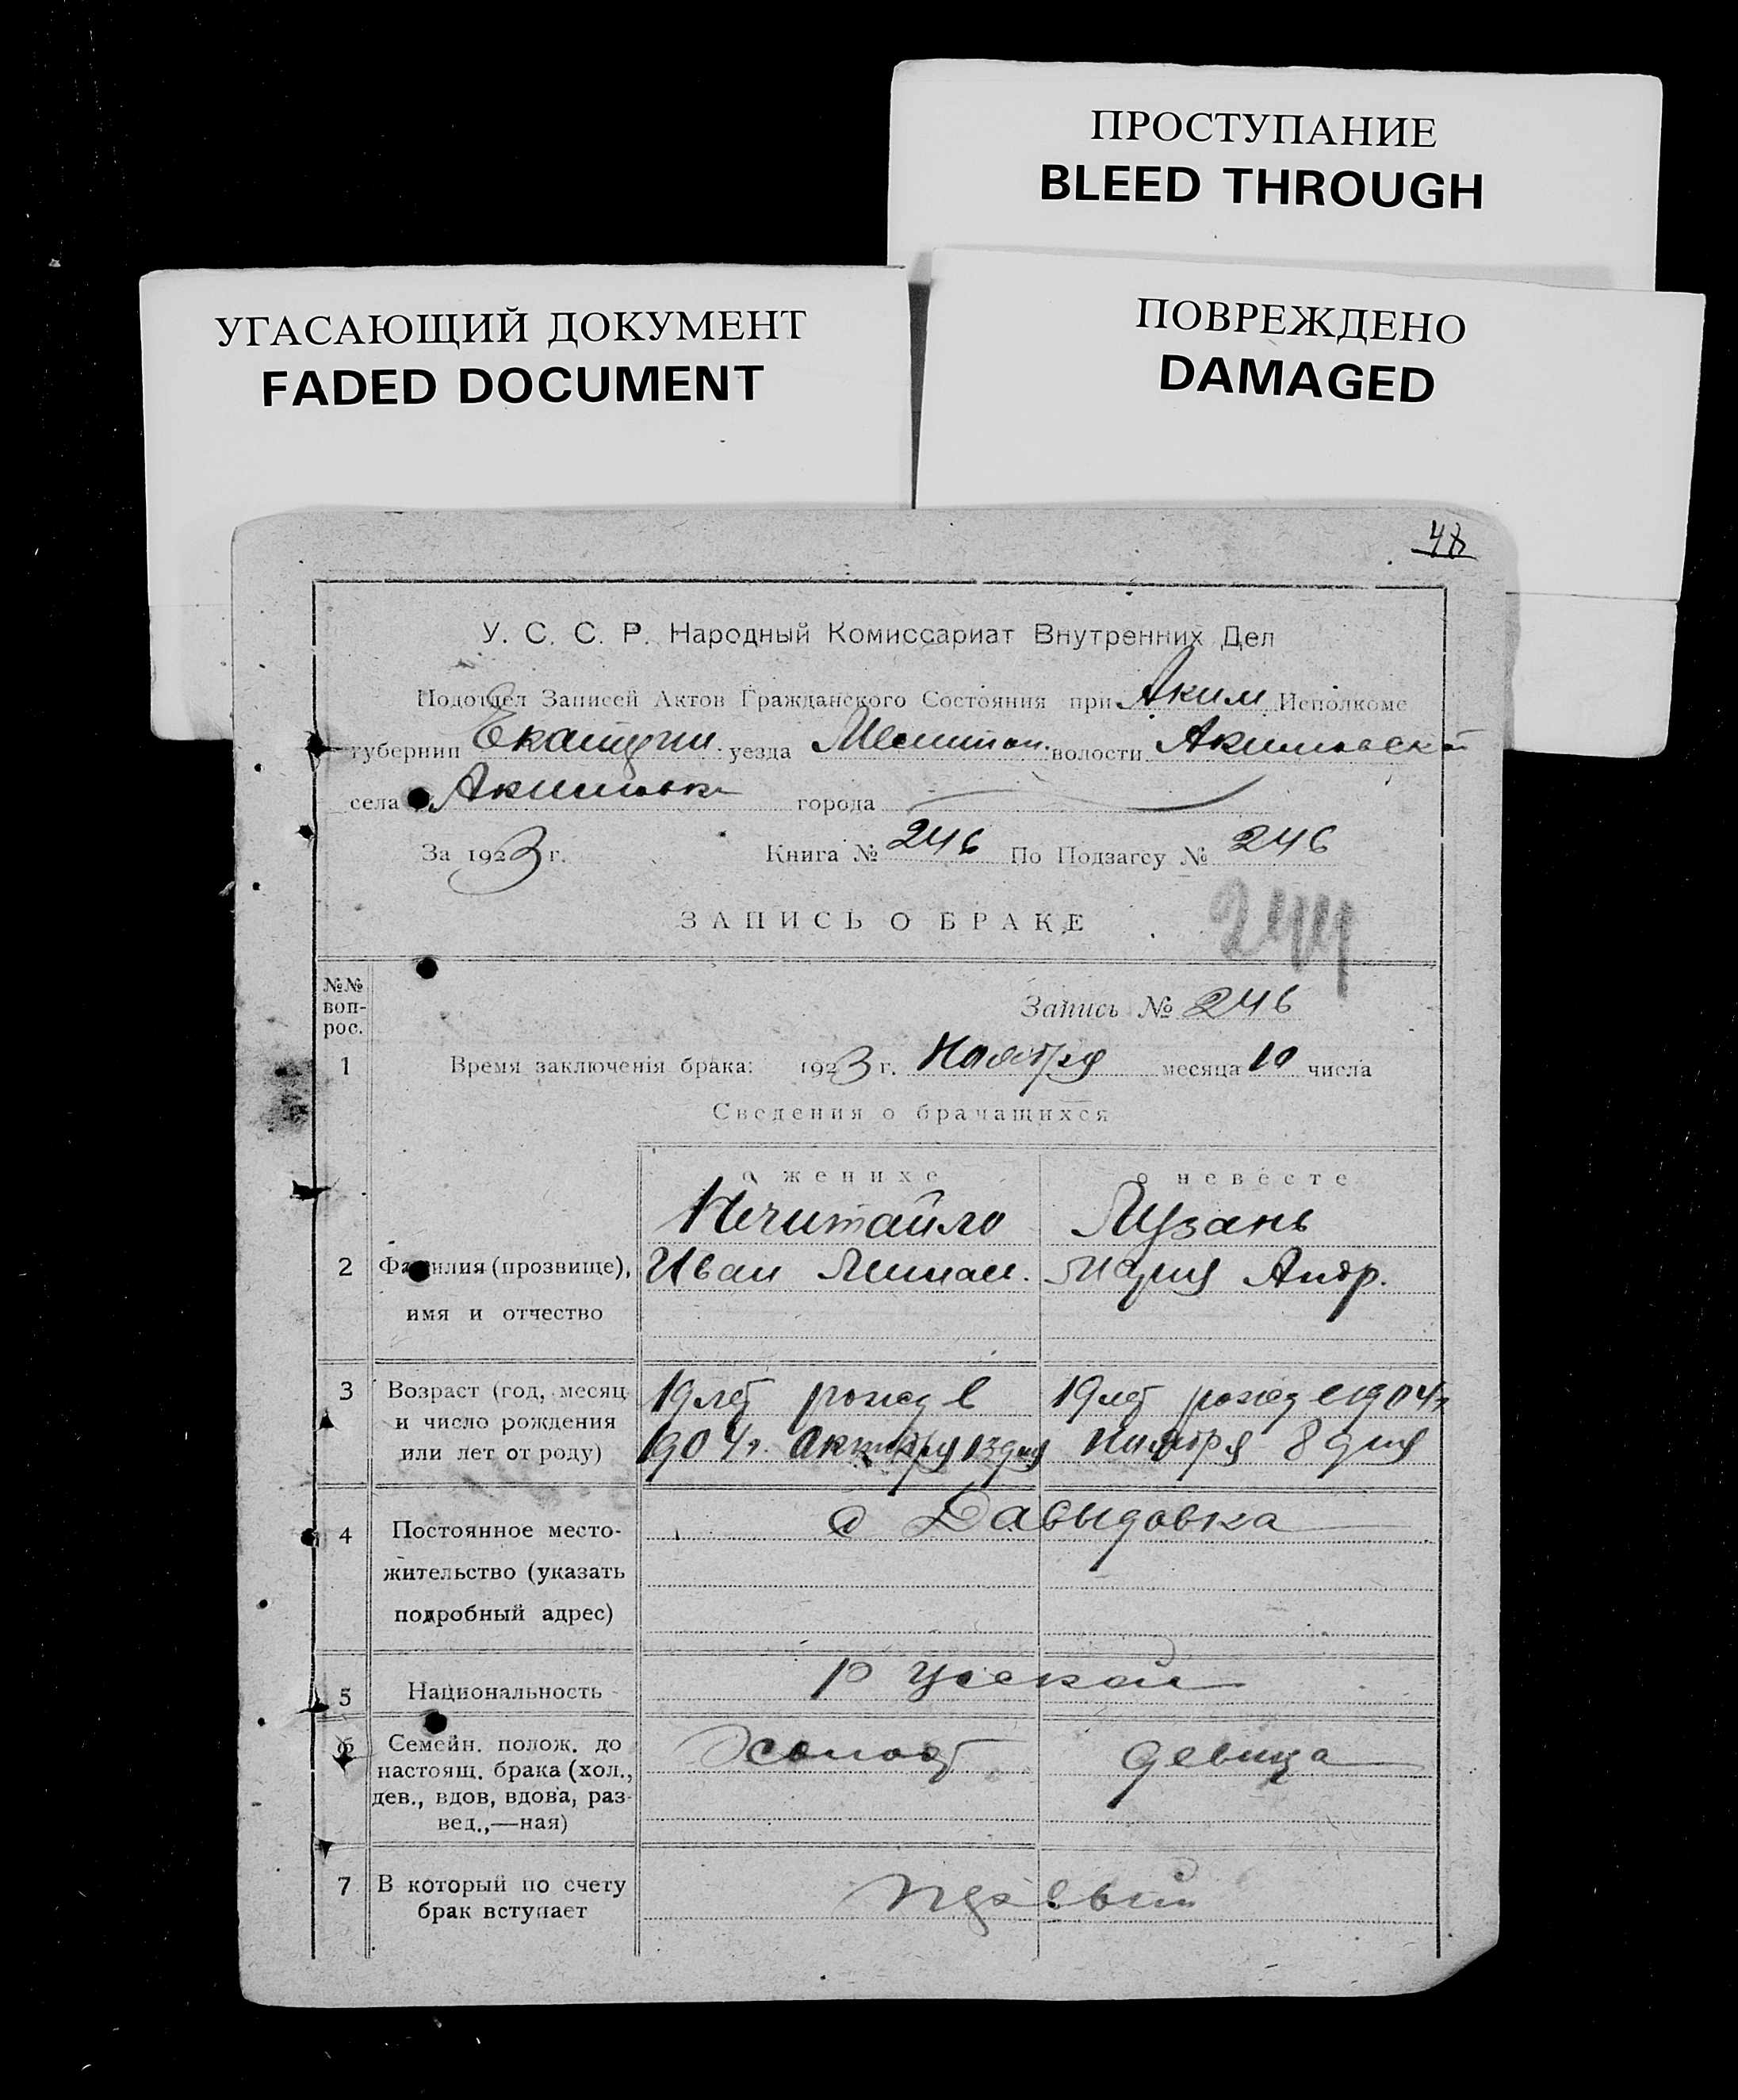 ПРОСТУПАНИЕ
BLEED THROUGH
УГАСАЮЩИЙ ДОКУМЕНТ
FADED DOCUMENT
ПОВРЕЖДЕНО
DAMAGED
48
У. С. С. Р. Народный Комиссариат Внутренних Дел
Подотдел Записей Актов Гражданского Состояния при Аким Исполкоме
губернии уезда волости Акимовской
села Акимовка города
За 1923 г. Книга № 246 По Подзагсу № 246
ЗАПИСЬ О БРАКЕ
244
№№ воп-рос.
Запись № 246
1 Время заключенія брака: 1923 г. Ноября месяца 10 числа
Сведения о брачащихся
о женихе о невесте
Нечитайло Лузань
2 Фамилия (прозвище), Иван Мария Андр.
имя и отчество
3 Возраст (год, месяц 19 лет рожд в 19 лет рожд 1904г
и число рождения 1904г. Октября 13 дня Ноября 8 дня
или лет от роду)
4 Постоянное место- с Давыдовка
жительство (указать
подробный адрес)
5 Национальность русской
6 Семейн. полож. до Холост девица
настоящ. брака (хол.,
дев., вдов, вдова, раз-
вед.,—ная)
7 В который по счету первый
брак вступает